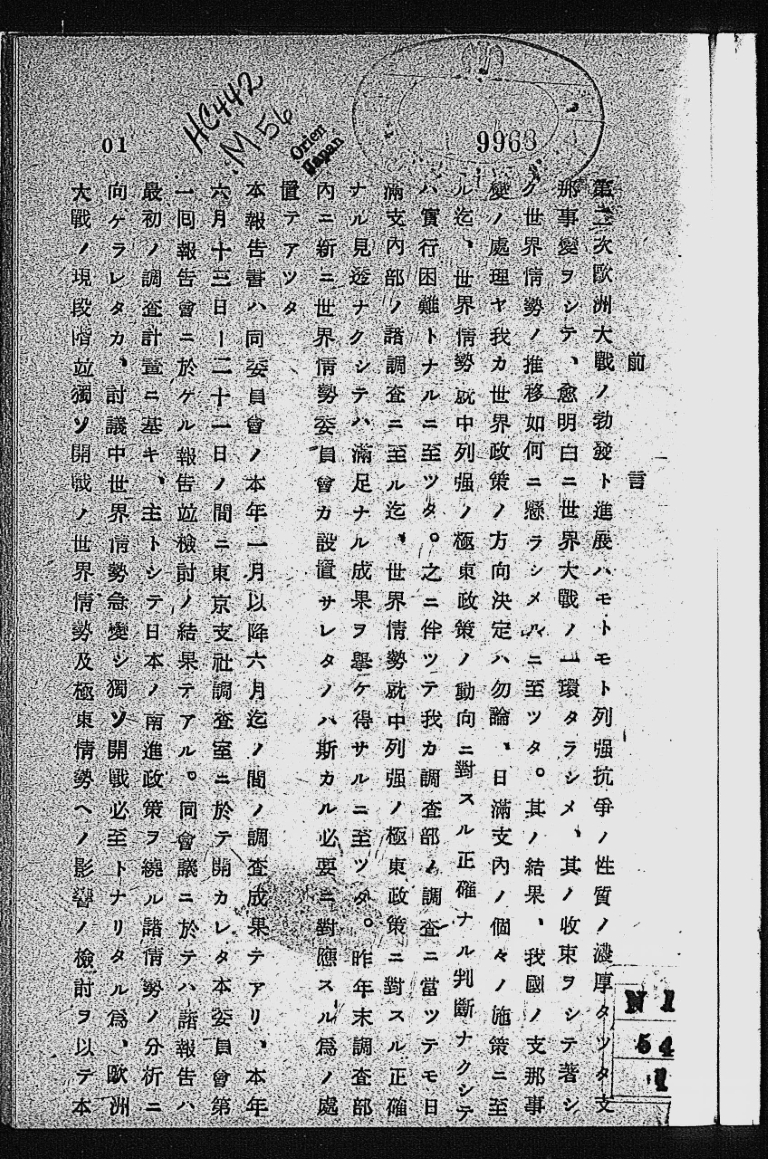 HC442
.M56
Orien
Japan
9963
01
前言
第二次歐洲大戰ノ勃發ト進展ハモトモト列强抗爭ノ性質ノ濃厚タツタ支
那事變ヲシテ、愈明白ニ世界大戰ノ一環タラシメ、其ノ收束ヲシテ著シ
ク世界情勢ノ推移如何ニ懸ラシメルニ至ツタ。其ノ結果、我國ノ支那事
變ノ處理ヤ我カ世界政策ノ方向決定ハ勿論、日滿支內ノ個々ノ施策ニ至
ル迄、世界情勢就中列强ノ極東政策ノ動向ニ對スル正確ナル判斷ナクシテ
ハ實行困難トナルニ至ツタ。之ニ伴ツテ我カ調査部ノ調査ニ當ツテモ日
滿支內部ノ諸調査ニ至ル迄、世界情勢就中列强ノ極東政策ニ對スル正確
ナル見透ナクシテハ滿足ナル成果ヲ擧ケ得サルニ至ツタ。昨年末調査部
內ニ新ニ世界情勢委員會カ設置サレタノハ斯カル必要ニ對應スル爲ノ處
置テアツタ
本報告書ハ同委員會ノ本年一月以降六月迄ノ間ノ調査成果テアリ、本年
六月十三日ー二十一日ノ間ニ東京支社調査室ニ於テ開カレタ本委員會第
一回報告會ニ於ケル報告竝檢討ノ結果テアル。同會議ニ於テハ諸報告ハ
最初ノ調査計畫ニ基キ、主トシテ日本ノ南進政策ヲ繞ル諸情勢ノ分析ニ
向ケラレタカ、討議中世界情勢急變シ獨ソ開戰必至トナリタル爲、歐洲
大戰ノ現段階竝獨ソ開戰ノ世界情勢及極東情勢ヘノ影響ノ檢討ヲ以テ本
N1
54
1